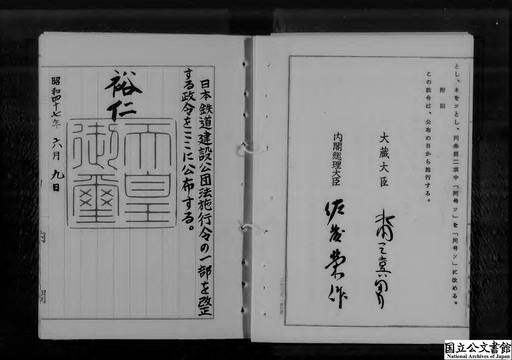 とし、ネをツとし、同条第二項中「同号ツ」を「同号ソ」に改める。
附則
この政令は、公布の日から施行する。
大蔵大臣
内閣総理大臣 佐藤榮作
日本鉄道建設公団法施行令の一部を改正
する政令をここに公布する。
裕仁
天皇
御璽
昭和四十七年 六月 九日
国立公文書館
National Archives of Japan